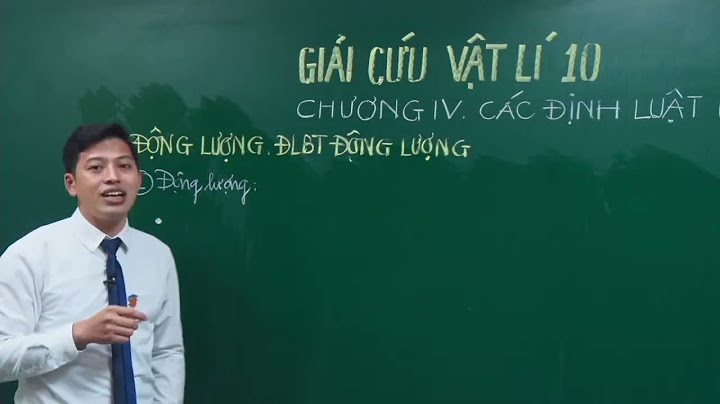 GIẢI CỨU VẬT LÍ 10
CHƯƠNG IV. CÁC ĐỊNH LUẬT
ĐỘNG LƯỢNG. ĐLBT ĐỘNG LƯỢNG
Động lượng: